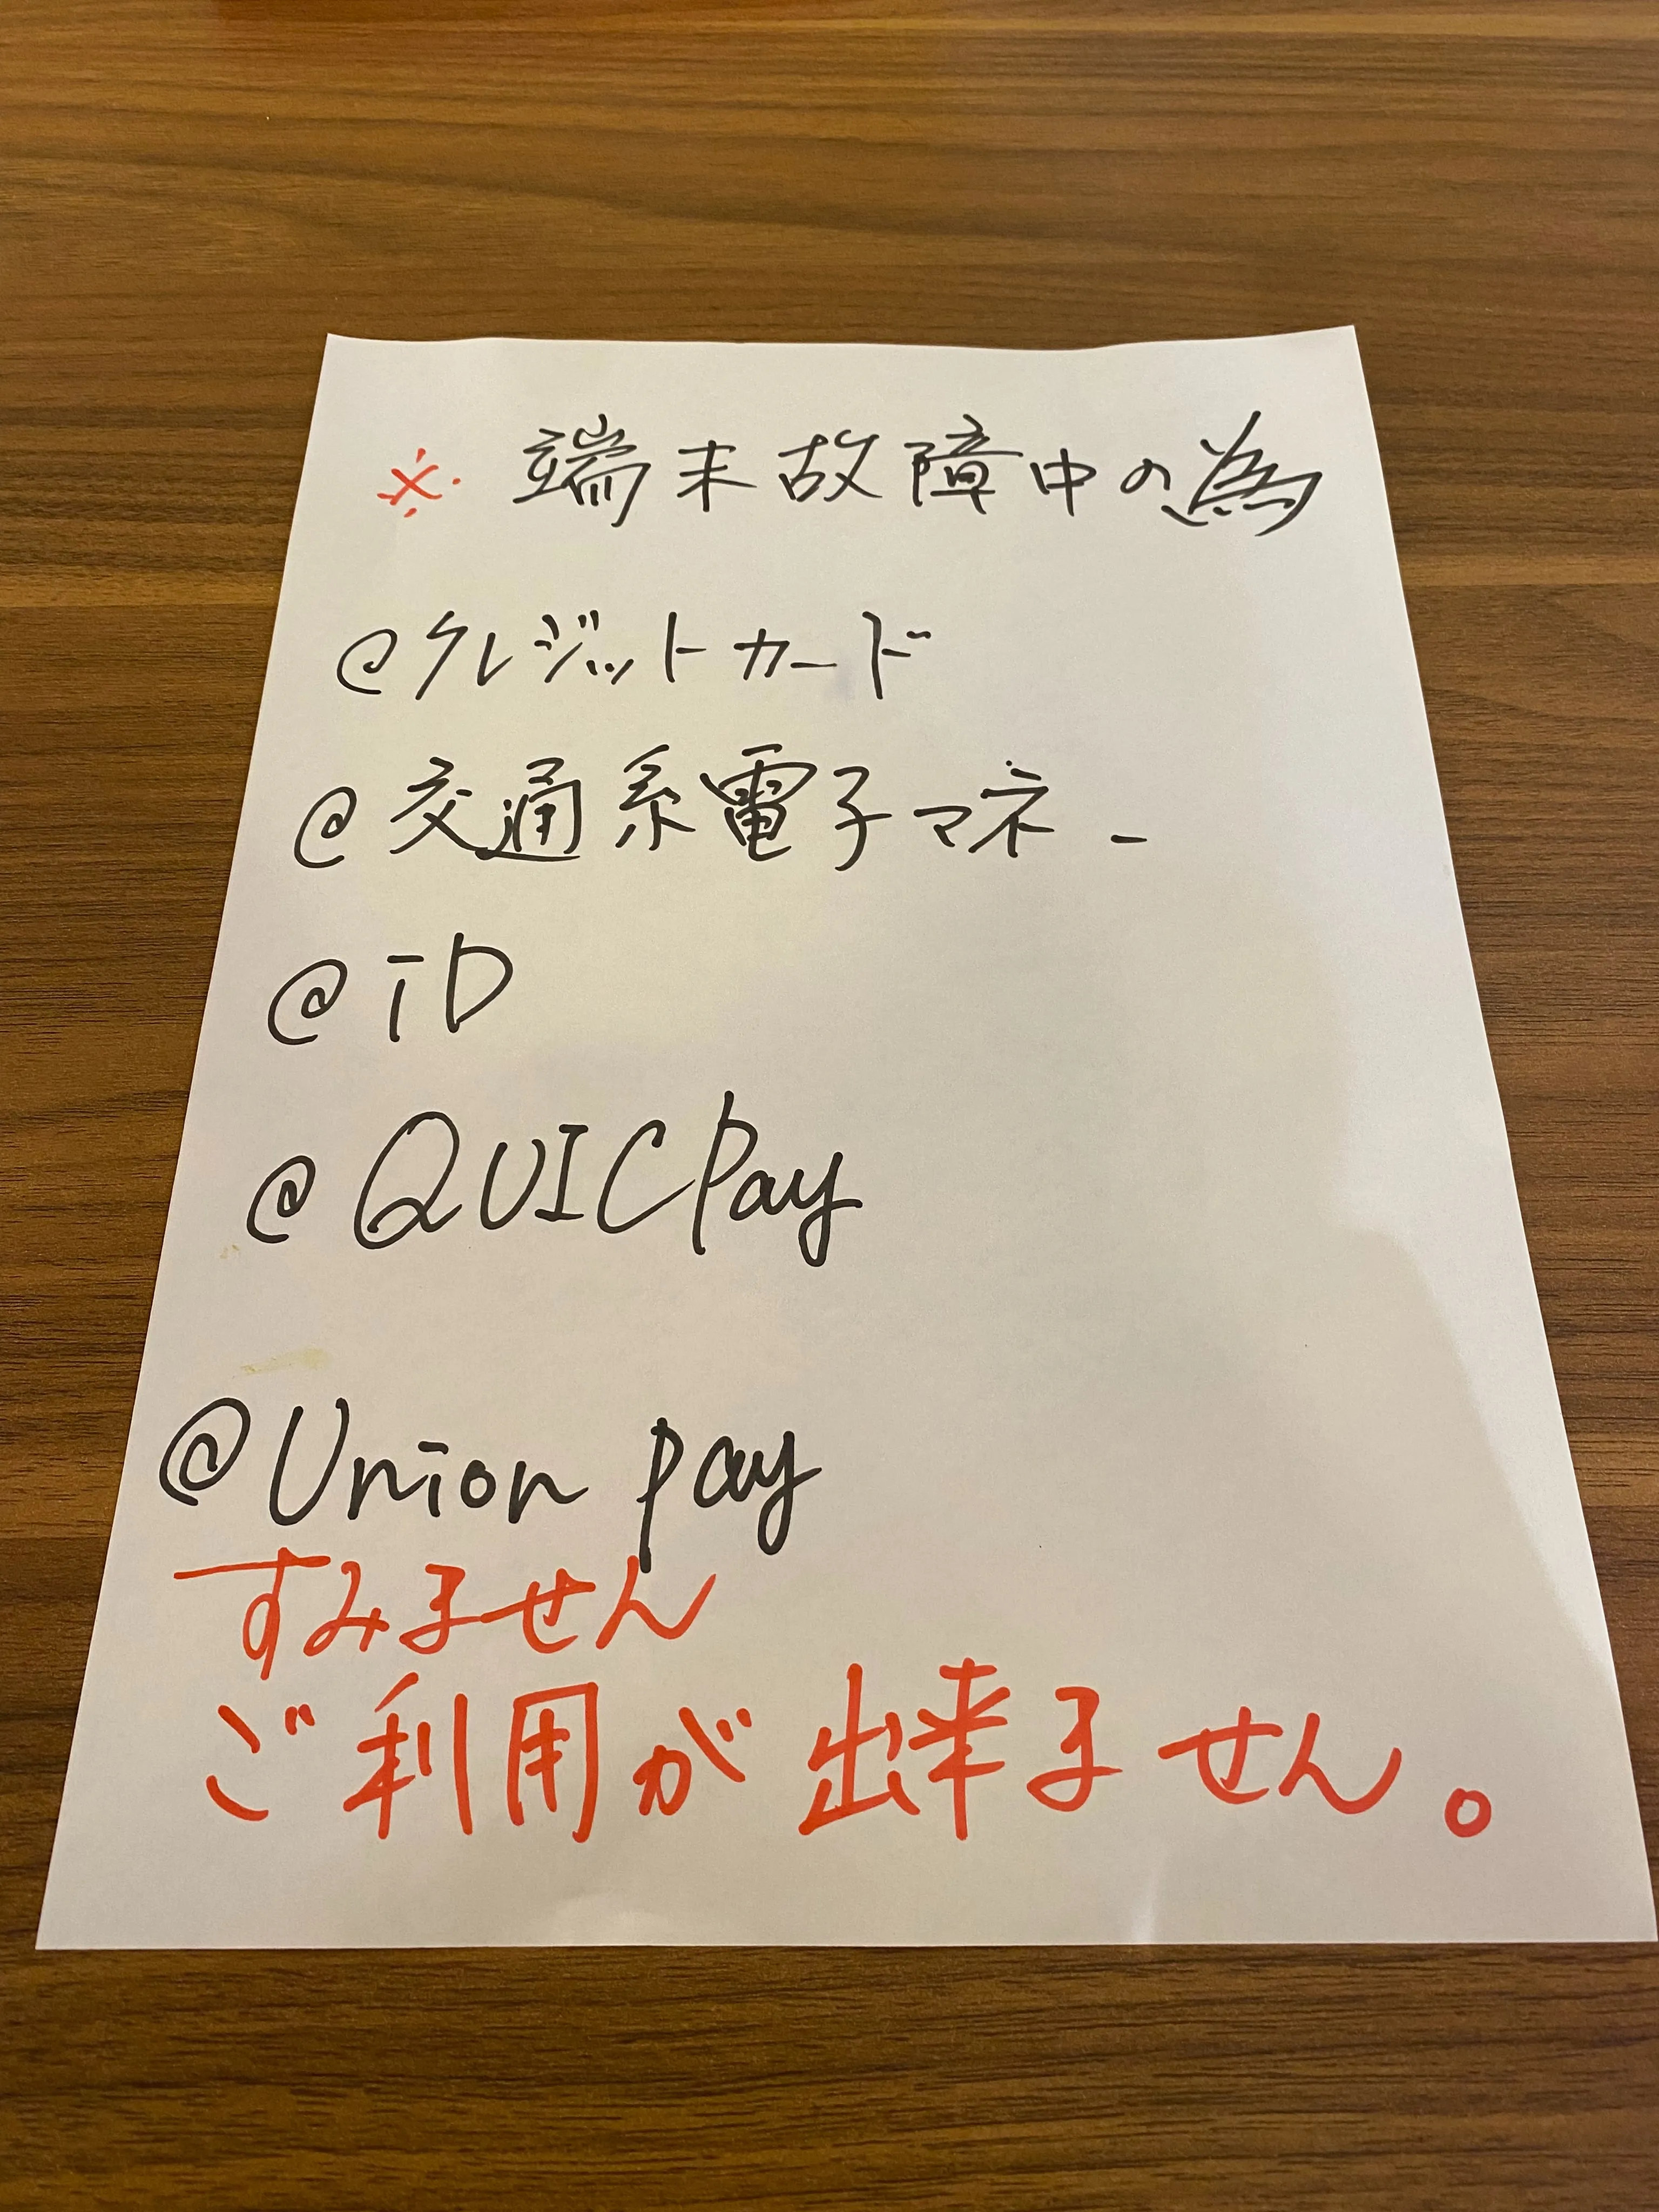 ※ 端末故障中の為
@クレジットカード
@交通系電子マネー
@iD
@QUICPay
@Union pay
すみません
ご利用が出来ません。